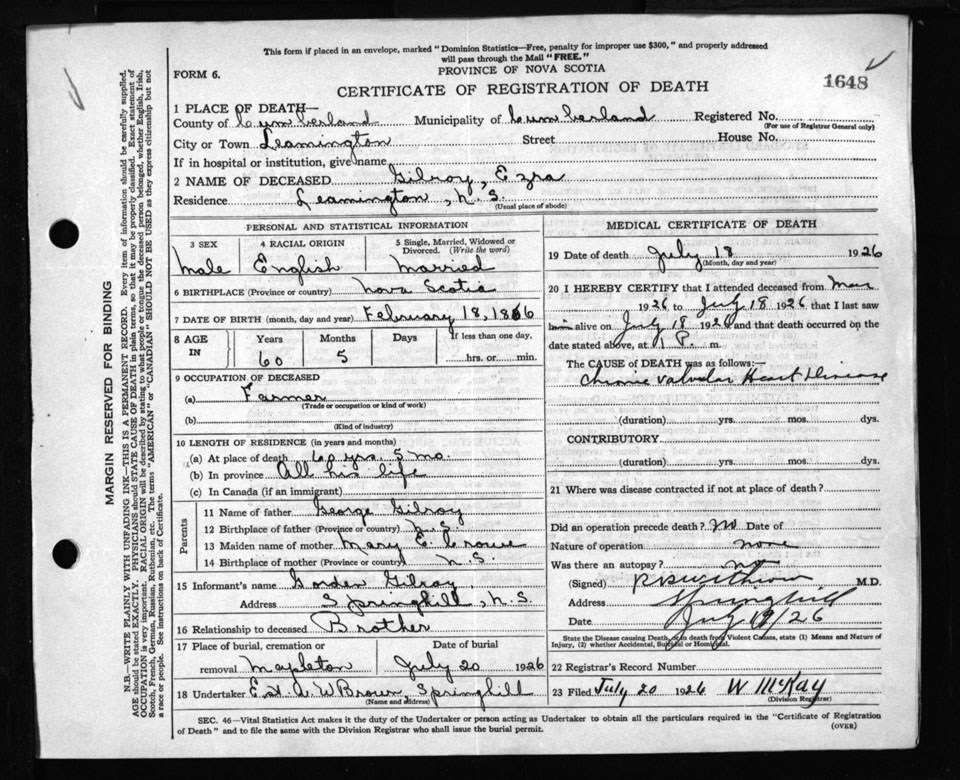 This form if placed in an envelope, marked "Dominion Statistics—Free, penalty for improper use $300," and properly addressed
will pass through the Mail "FREE."
PROVINCE OF NOVA SCOTIA
FORM 6.
CERTIFICATE OF REGISTRATION OF DEATH
1648
1 PLACE OF DEATH—
County of Cumberland Municipality of Cumberland Registered No.
(For use of Registrar General only)
City or Town Leamington Street House No.
If in hospital or institution, give name
2 NAME OF DECEASED Gilroy, Ezra
Residence Leamington, N. S.
(Usual place of abode)
PERSONAL AND STATISTICAL INFORMATION
3 SEX 4 RACIAL ORIGIN 5 Single, Married, Widowed or
Divorced. (Write the word)
Male English Married
6 BIRTHPLACE (Province or country) Nova Scotia
7 DATE OF BIRTH (month, day and year) February 18, 1866
8 AGE IN Years Months Days If less than one day,
60 5 hrs. or min.
9 OCCUPATION OF DECEASED
(a) Farmer
(Trade or occupation or kind of work)
(b)
(Kind of industry)
10 LENGTH OF RESIDENCE (in years and months)
(a) At place of death 60 yrs. 5 mo.
(b) In province All his life
(c) In Canada (if an immigrant)
Parents
11 Name of father George Gilroy
12 Birthplace of father (Province or country) N. S.
13 Maiden name of mother Mary E. Crowe
14 Birthplace of mother (Province or country) N. S.
15 Informant's name Gorden Gilroy
Address Springhill, N. S.
16 Relationship to deceased Brother
17 Place of burial, cremation or Date of burial
removal Mapleton July 20 1926
18 Undertaker Est. A. W Brown, Springhill
(Name and address)
MEDICAL CERTIFICATE OF DEATH
19 Date of death July 18 1926
(Month, day and year)
20 I HEREBY CERTIFY that I attended deceased from Mar
1926 to July 18 1926 that I last saw
him alive on July 18 1926 and that death occurred on the
date stated above, at 1 P. m.
The CAUSE OF DEATH was as follows:
Chronic Valvular Heart Disease
(duration) yrs. mos. dys.
CONTRIBUTORY
(duration) yrs. mos. dys.
21 Where was disease contracted if not at place of death?
Did an operation precede death? No Date of
Nature of operation none
Was there an autopsy? no
(Signed) M.D.
Address Springhill
Date July 19/26
State the Disease causing Death, or in death from Violent Causes, state (1) Means and Nature of
Injury, (2) whether Accidental, Suicidal or Homicidal.
22 Registrar's Record Number
23 Filed July 20 1926 W McKay
(Division Registrar)
SEC. 46—Vital Statistics Act makes it the duty of the Undertaker or person acting as Undertaker to obtain all the particulars required in the "Certificate of Registration
of Death" and to file the same with the Division Registrar who shall issue the burial permit.
(OVER)
MARGIN RESERVED FOR BINDING
N.B.—WRITE PLAINLY WITH UNFADING INK—THIS IS A PERMANENT RECORD. Every item of information should be carefully supplied.
AGE should be stated EXACTLY. PHYSICIANS should STATE CAUSE OF DEATH in plain terms, so that it may be properly classified. Exact statement of
OCCUPATION is very important. RACIAL ORIGIN will be described by stating to what people or tongue the deceased person belonged, whether English, Irish,
Scotch, French, German, Russian, Ruthenian, etc. The terms "AMERICAN" or "CANADIAN" SHOULD NOT BE USED as they express citizenship but not
a race or people. See instructions on back of Certificate.